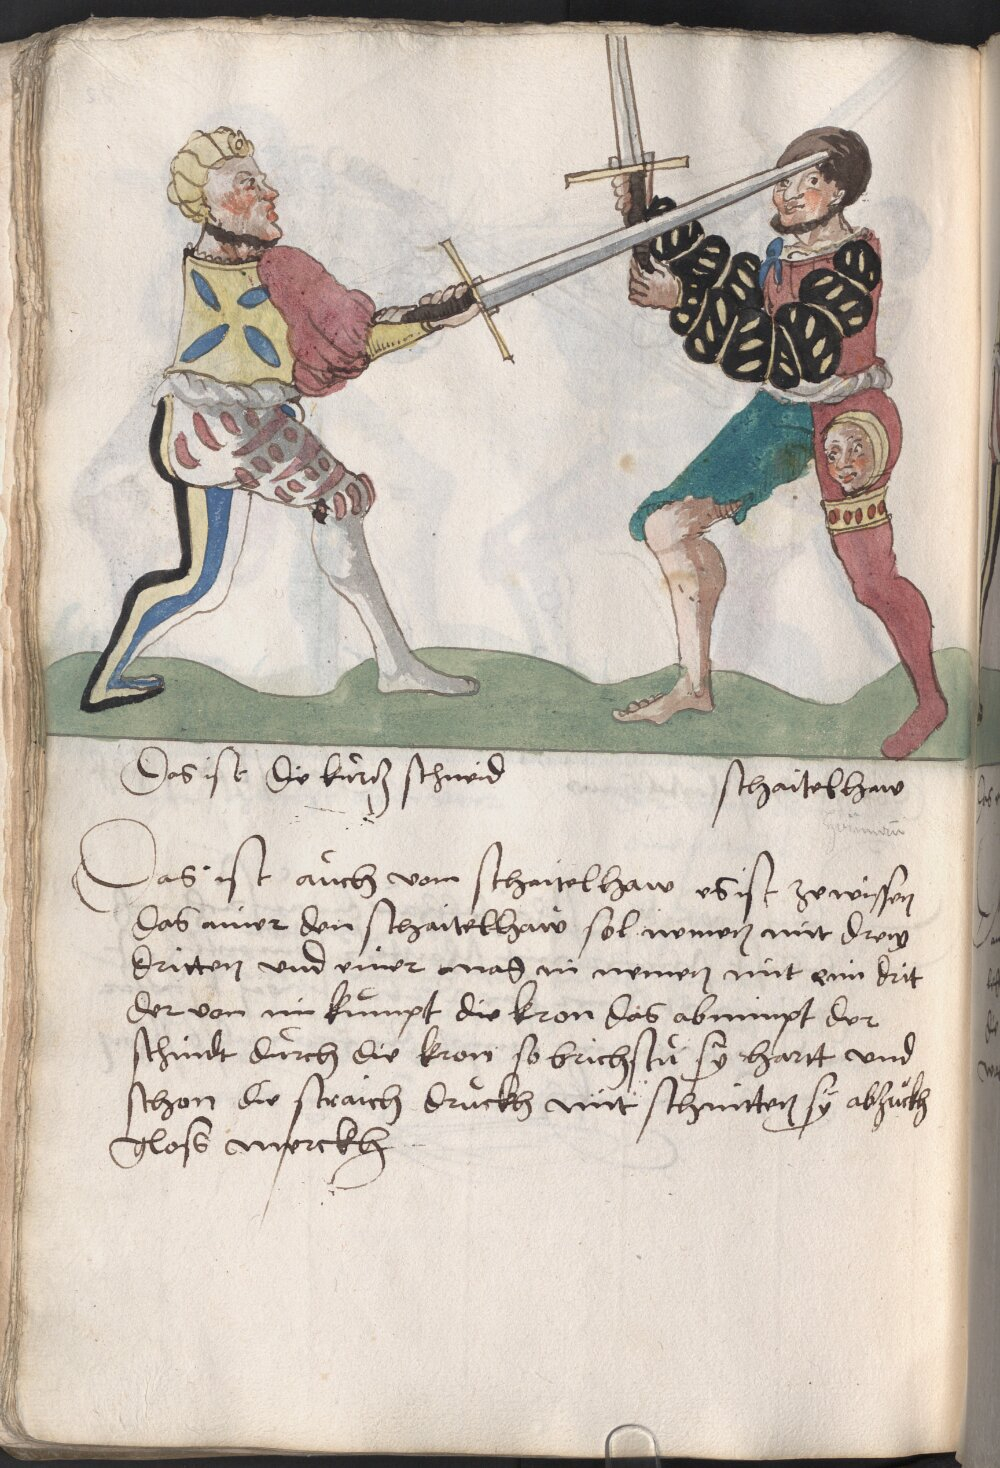 Das ist die kürtz schneid
schaitelhaw
Das ist auch vom schaitelhaw es ist zewissen
das ainer den schaitelhaw sol nemen mit dreyͦ
dritten und einer mag in nemen mit eim drit
der von im kumpt die kron das abnimpt der
schindt durch die kron so brichstu sy hartt und
schon die straich druckh mit schnitten sy abzuckh
gloss merckh